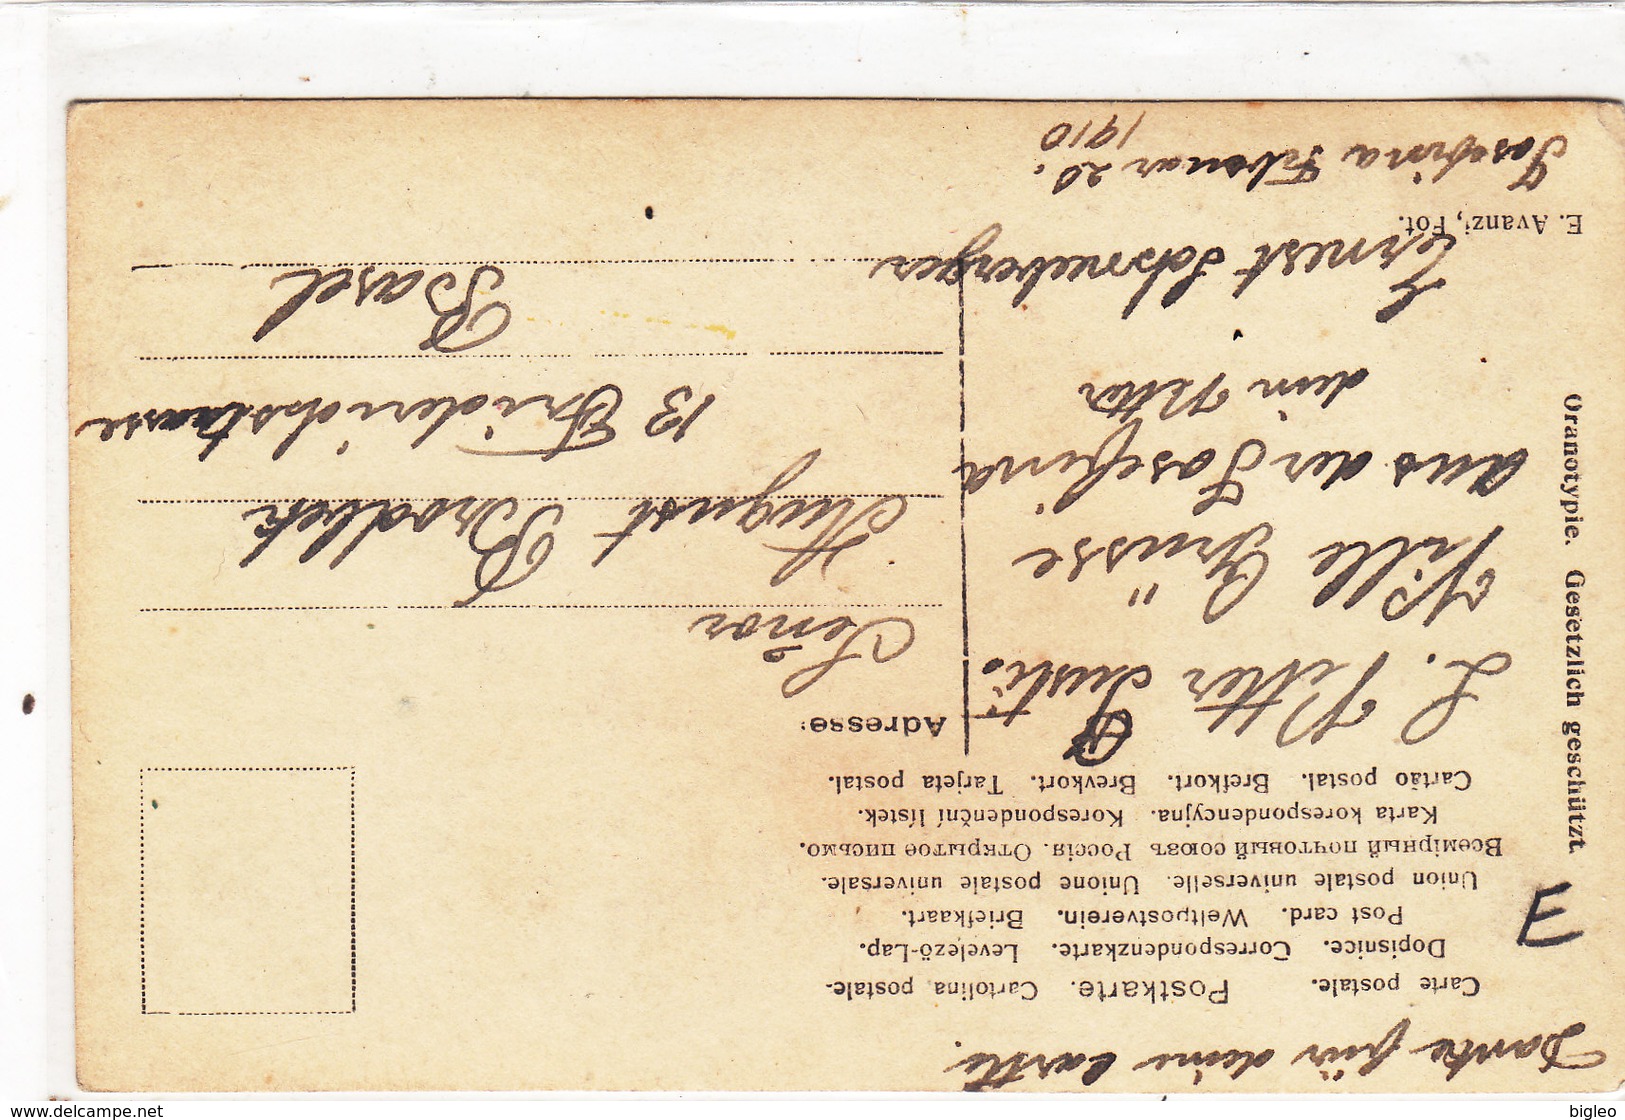 Danke für deine carte.
Carte postale. Postkarte. Cartolina postale.
Dopisnice. Correspondenzkarte. Levelező-Lap.
Post card. Weltpostverein. Briefkaart.
Union postale universelle. Unione postale universale.
Всемірный почтовый союзъ Россія. Открытое письмо.
Karta korespondencyjna. Korespondenční lístek.
Cartão postal. Brefkort. Brevkort. Tarjeta postal.
L. Vetter Gusti.
Ville Grüsse
aus der Josefina
dein Vetter
Ernest Schneeberger
E. Avanzi, Fot.
Josefina Februar 20.
1910
Adresse:
Señor
August Brodbek
13 Friderichstrasse
Basel
Oranotypie. Gesetzlich geschützt.
E
www.delcampe.net
bigleo